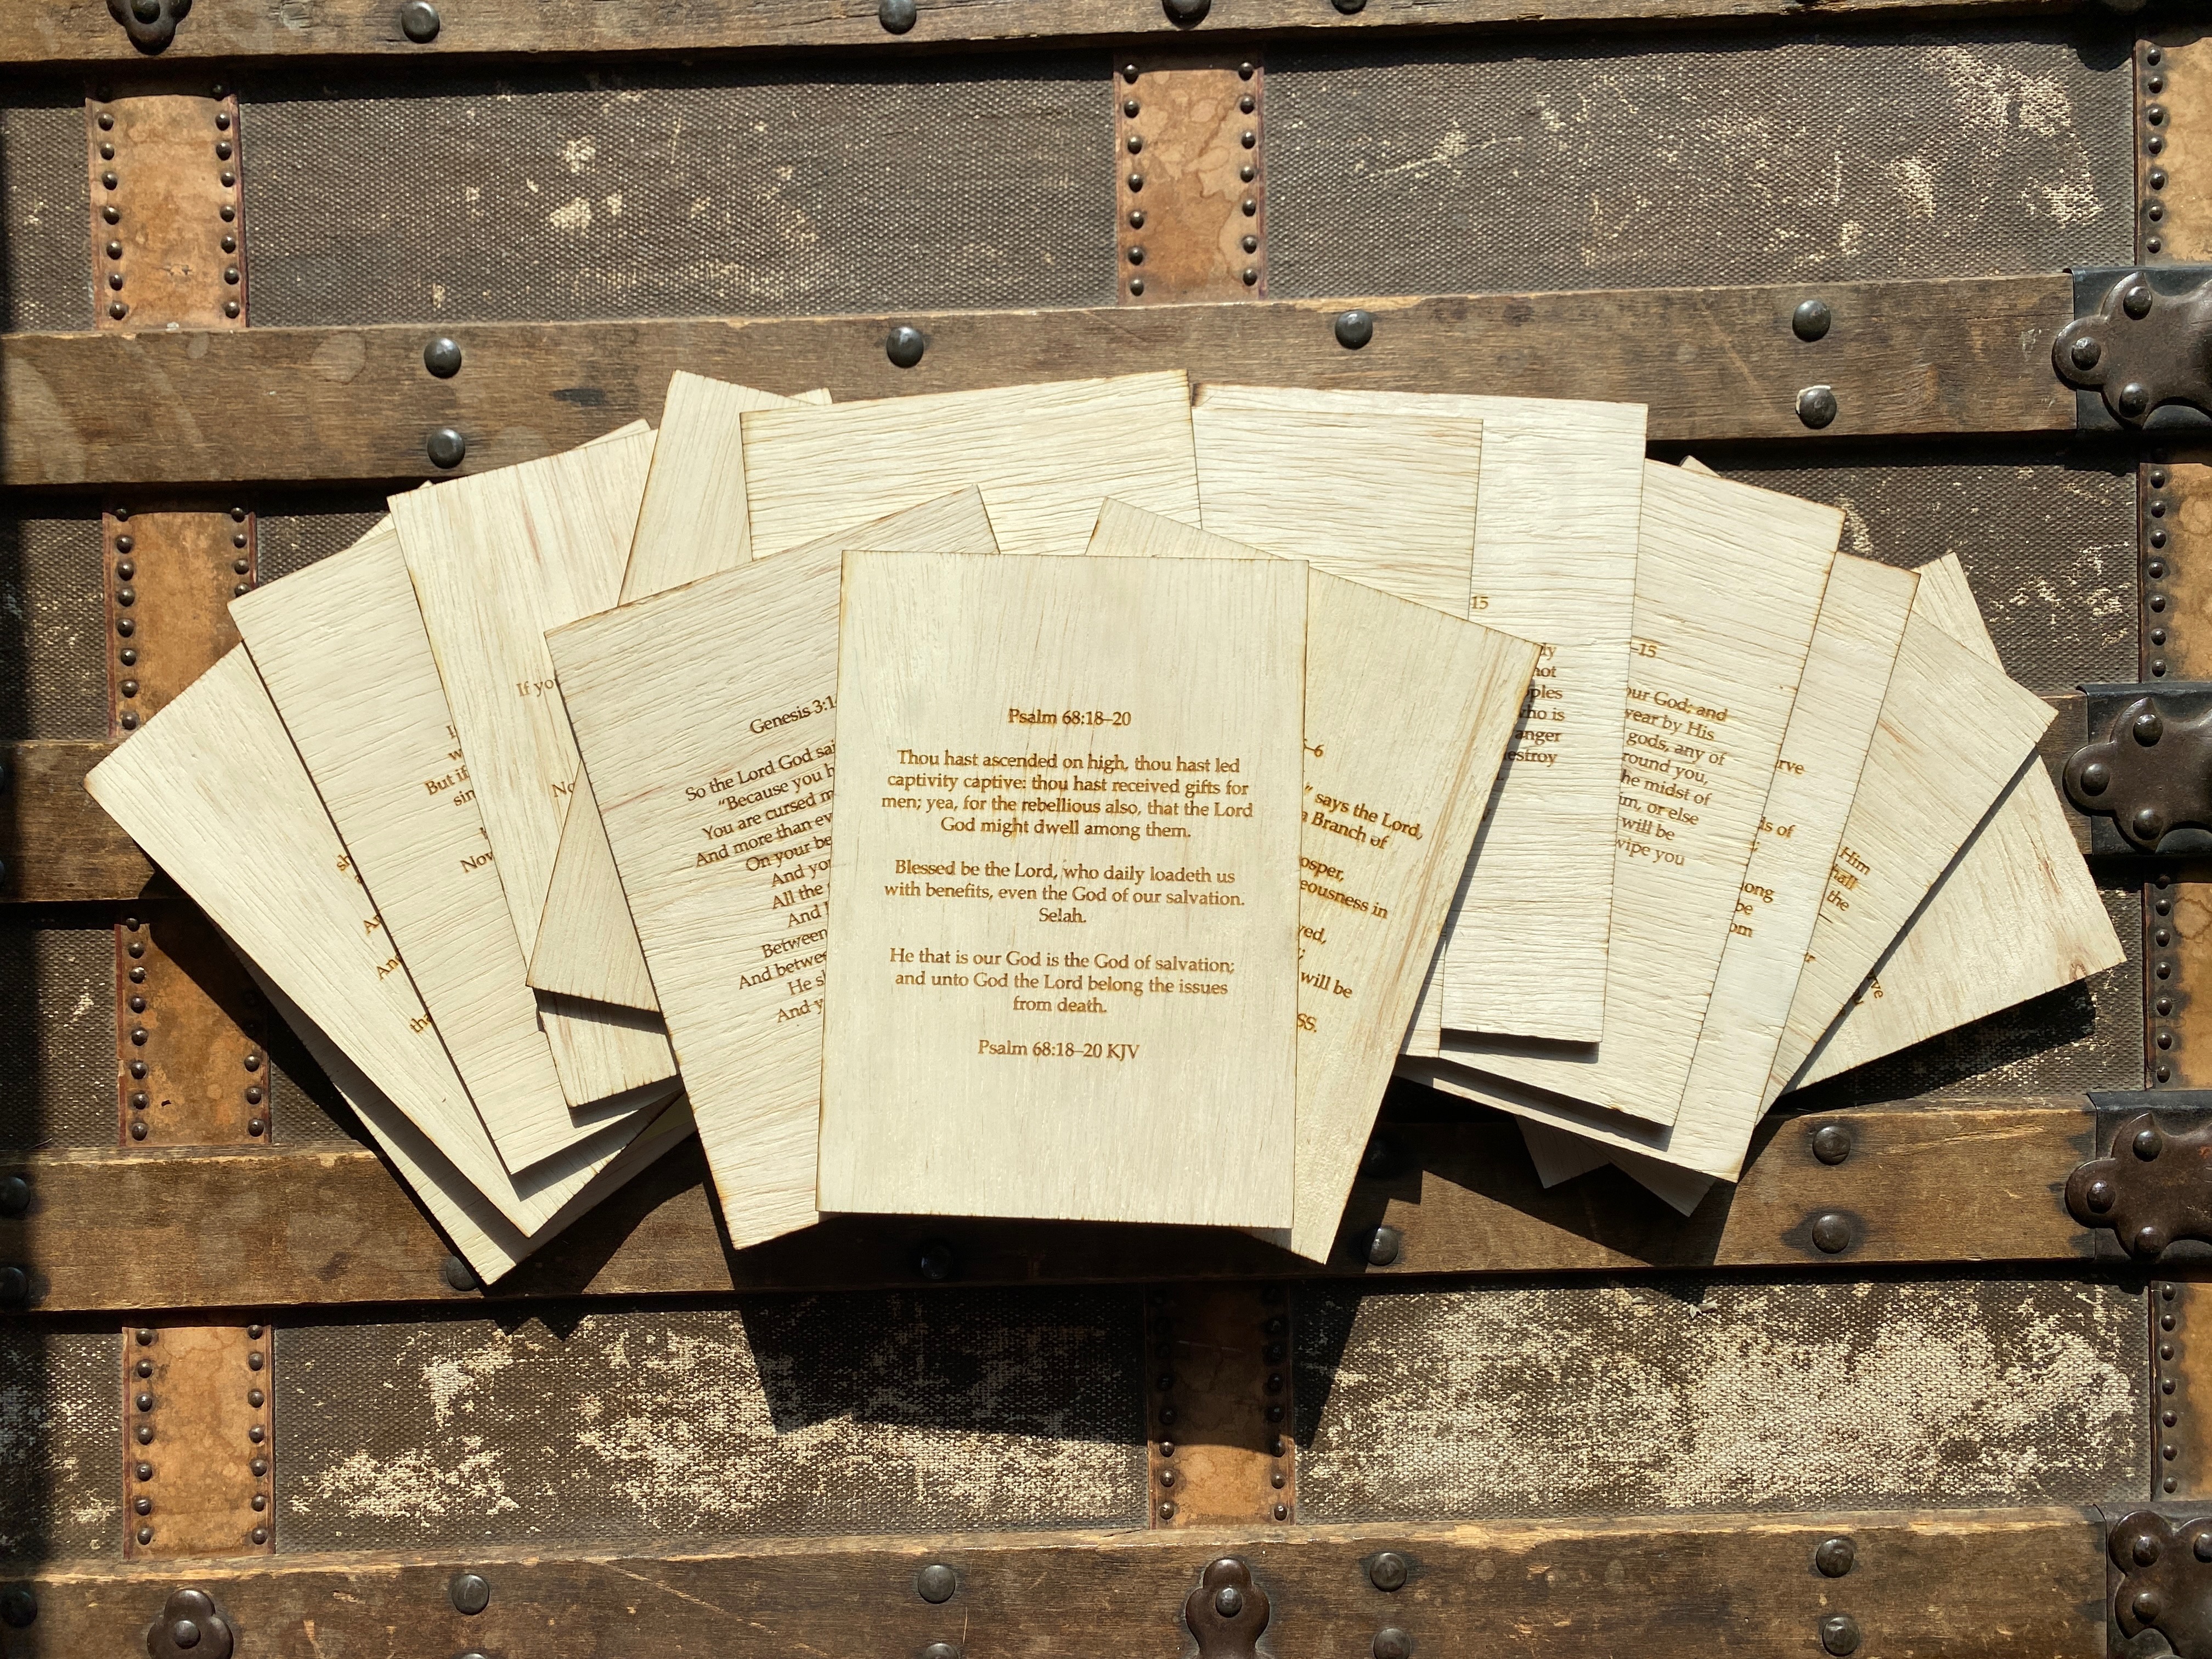 If you
But if
Now
sin
An
Genesis 3:1
So the Lord God sai
"Because you h
You are cursed m
And more than ev
On your be
And yo
All the
And I
Between
And betwe
He s
And y
Psalm 68:18–20
Thou hast ascended on high, thou hast led
captivity captive: thou hast received gifts for
men; yea, for the rebellious also, that the Lord
God might dwell among them.
Blessed be the Lord, who daily loadeth us
with benefits, even the God of our salvation.
Selah.
He that is our God is the God of salvation;
and unto God the Lord belong the issues
from death.
Psalm 68:18–20 KJV
5–6
" says the Lord,
a Branch of
osper,
eousness in
ved,
will be
SS.
15
not
ples
who is
anger
estroy
–15
our God; and
year by His
gods, any of
round you,
he midst of
m, or else
will be
wipe you
rve
ds of
ong
be
om
Him
hall
the